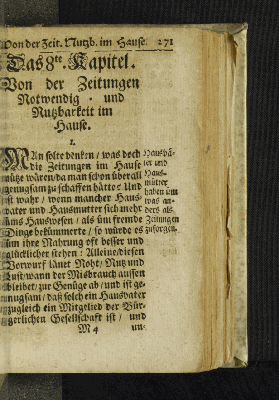 Von der Zeit. Nutzb. im Hause. 271
Das 8te. Kapitel.
Von der Zeitungen
Notwendig- und
Nutzbarkeit im
Hause.
1.
MAn solte denken / was doch
die Zeitungen im Hause
nütze wären / da man schon überall
genugsam zu schaffen hätte: Und
ist wahr / wenn mancher Haus-
vater und Hausmutter sich mehr
ums Hauswesen / als üm fremde
Dinge bekümmerte / so würde es
üm ihre Nahrung oft besser und
glüklicher stehen: Alleine / diesen
Vorwurf länet Noht / Nutz und
Lust / wann der Misbrauch aussen
bleibet / zur Genüge ab / und ist ge-
nugsam / daß solch ein Hausvater
zugleich ein Mitglied der Bür-
gerlichen Gesellschaft ist / und
M 4 un-
Haushä-
ter und
Haus-
mütter
haben üm
was an-
ders als
Zeitungen
zusorgen.